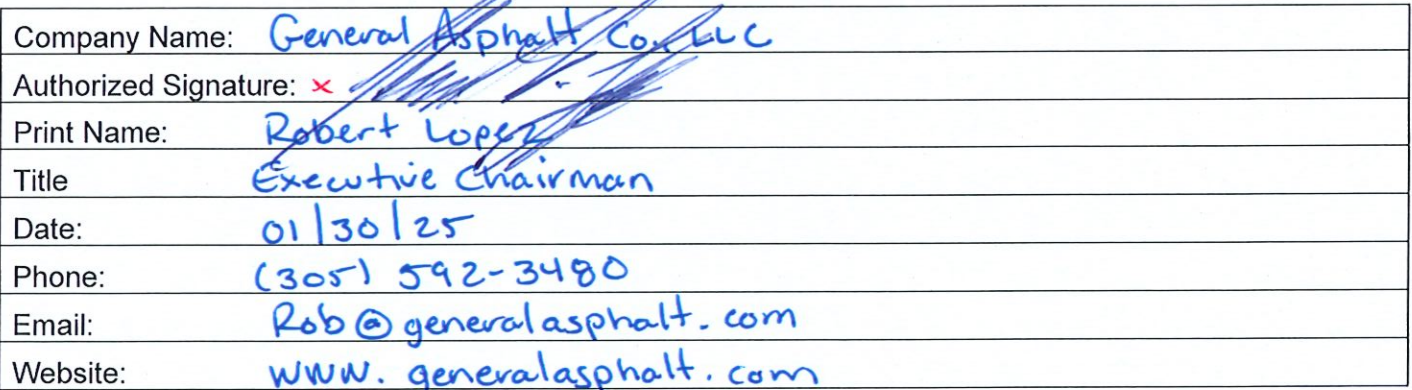 Company Name: General Asphalt Co., LLC
Authorized Signature: x
Print Name: Robert Lopez
Title Executive Chairman
Date: 01/30/25
Phone: (305) 592-3480
Email: Rob@generalasphalt.com
Website: www.generalasphalt.com